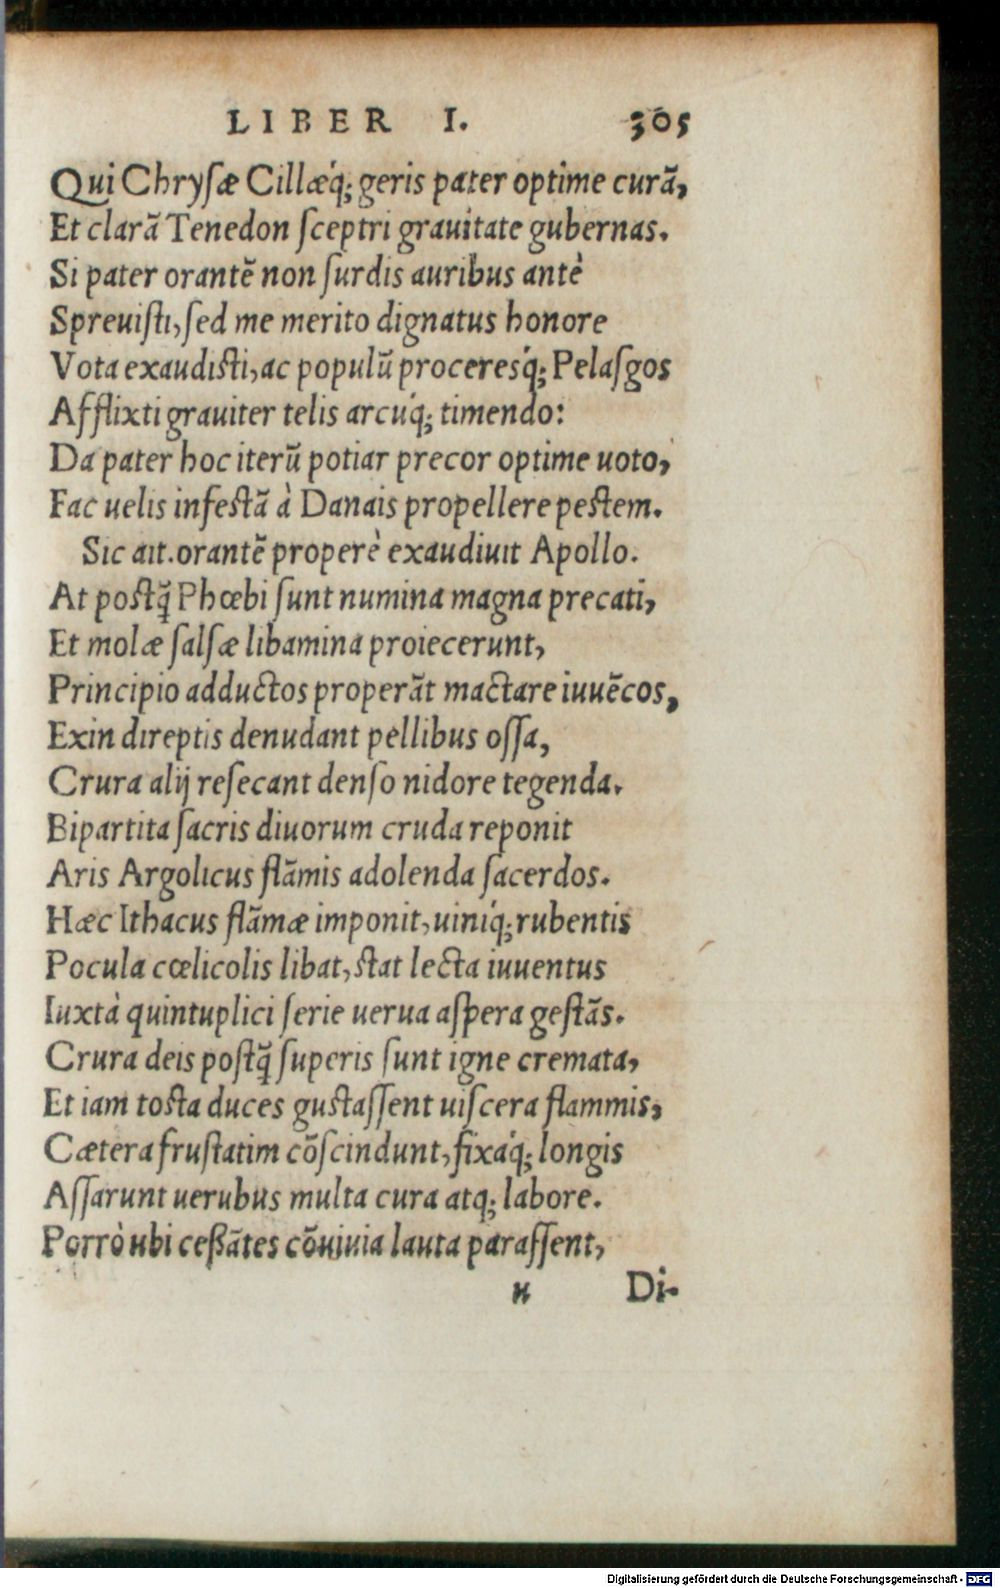 LIBER I. 305
Qui Chryſæ Cillæq́; geris pater optime curā,
Et clarā Tenedon ſceptri grauitate gubernas.
Si pater orantē non ſurdis auribus antè
Spreuiſti, ſed me merito dignatus honore
Vota exaudiſti, ac populū proceresq́; Pelaſgos
Afflixti grauiter telis arcuq́; timendo:
Da pater hoc iterū potiar precor optime uoto,
Fac uelis infeſtā à Danais propellere peſtem.
Sic ait. orantē properè exaudiuit Apollo.
At poſtq̃ Phœbi ſunt numina magna precati,
Et molæ ſalſæ libamina proiecerunt,
Principio adductos properāt mactare iuuēcos,
Exin direptis denudant pellibus oſſa,
Crura alij reſecant denſo nidore tegenda.
Bipartita ſacris diuorum cruda reponit
Aris Argolicus flāmis adolenda ſacerdos.
Hæc Ithacus flāmæ imponit, uiniq́; rubentis
Pocula cœlicolis libat, ſtat lecta iuuentus
Iuxtà quintuplici ſerie uerua aſpera geſtās.
Crura deis poſtq̃ ſuperis ſunt igne cremata,
Et iam toſta duces guſtaſſent uiſcera flammis,
Cætera fruſtatim cōſcindunt, fixaq́; longis
Aſſarunt uerubus multa cura atq; labore.
Porrò ubi ceßātes cōuiuia lauta paraſſent,
u Di-
Digitalisierung gefördert durch die Deutsche Forschungsgemeinschaft - DFG